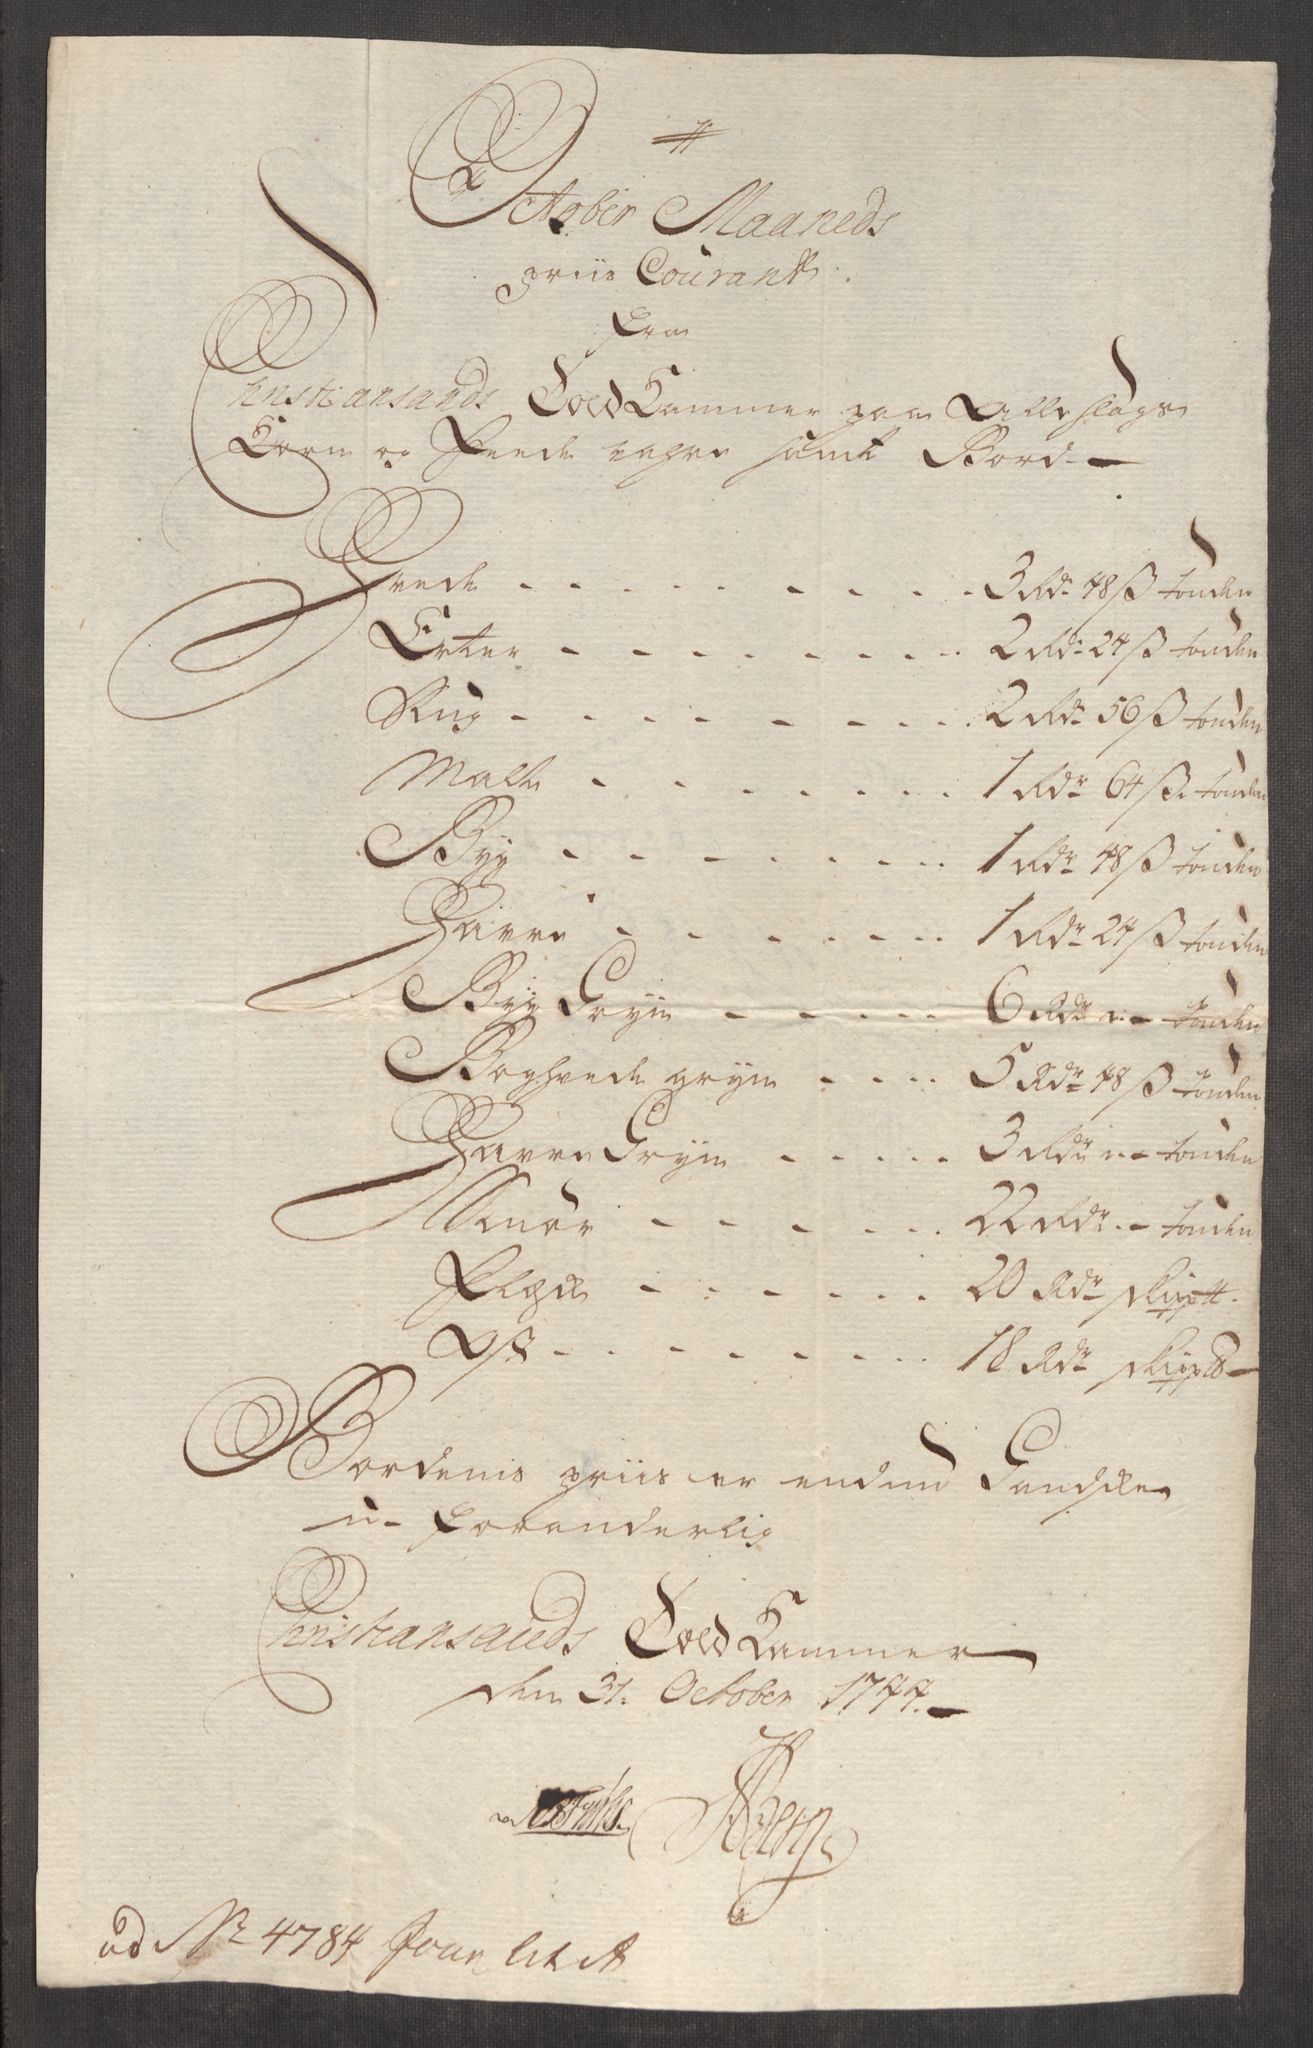 October Maaneds
priis Courant
fra
Christiansands Told Kammer paa Alle slags
Korn og Feede vahre samt Bord. —
Hvede - - - - - - - - - 3 Rdr 48 ß tonden
Erter - - - - - - - - - 2 Rdr 24 ß tonden
Rug - - - - - - - - - 2 Rdr 56 ß tonden
Malt - - - - - - - 1 Rdr 64 ß tonden
Byg - - - - - - - - 1 Rdr 48 ß tonden
Havre - - - - - - - - 1 Rdr 24 ß tonden
Byg Gryn - - - - - 6 Rdr „ - tonden
Boghvede gryn - - - - 5 Rdr 48 ß tonden
Havre Gryn - - - - - 3 Rdr „ - tonden
Smør - - - - - - 22 Rdr „ - tonden
Flesk - - - - - - 20 Rdr skipp
Ost - - - - - - - - 18 Rdr skipp
Bordenis priis er endnu Gandske
u- foranderlig
Christiansands Told Kammer
den 31. October 1744. —
ad Nr 4784 Jour lit A